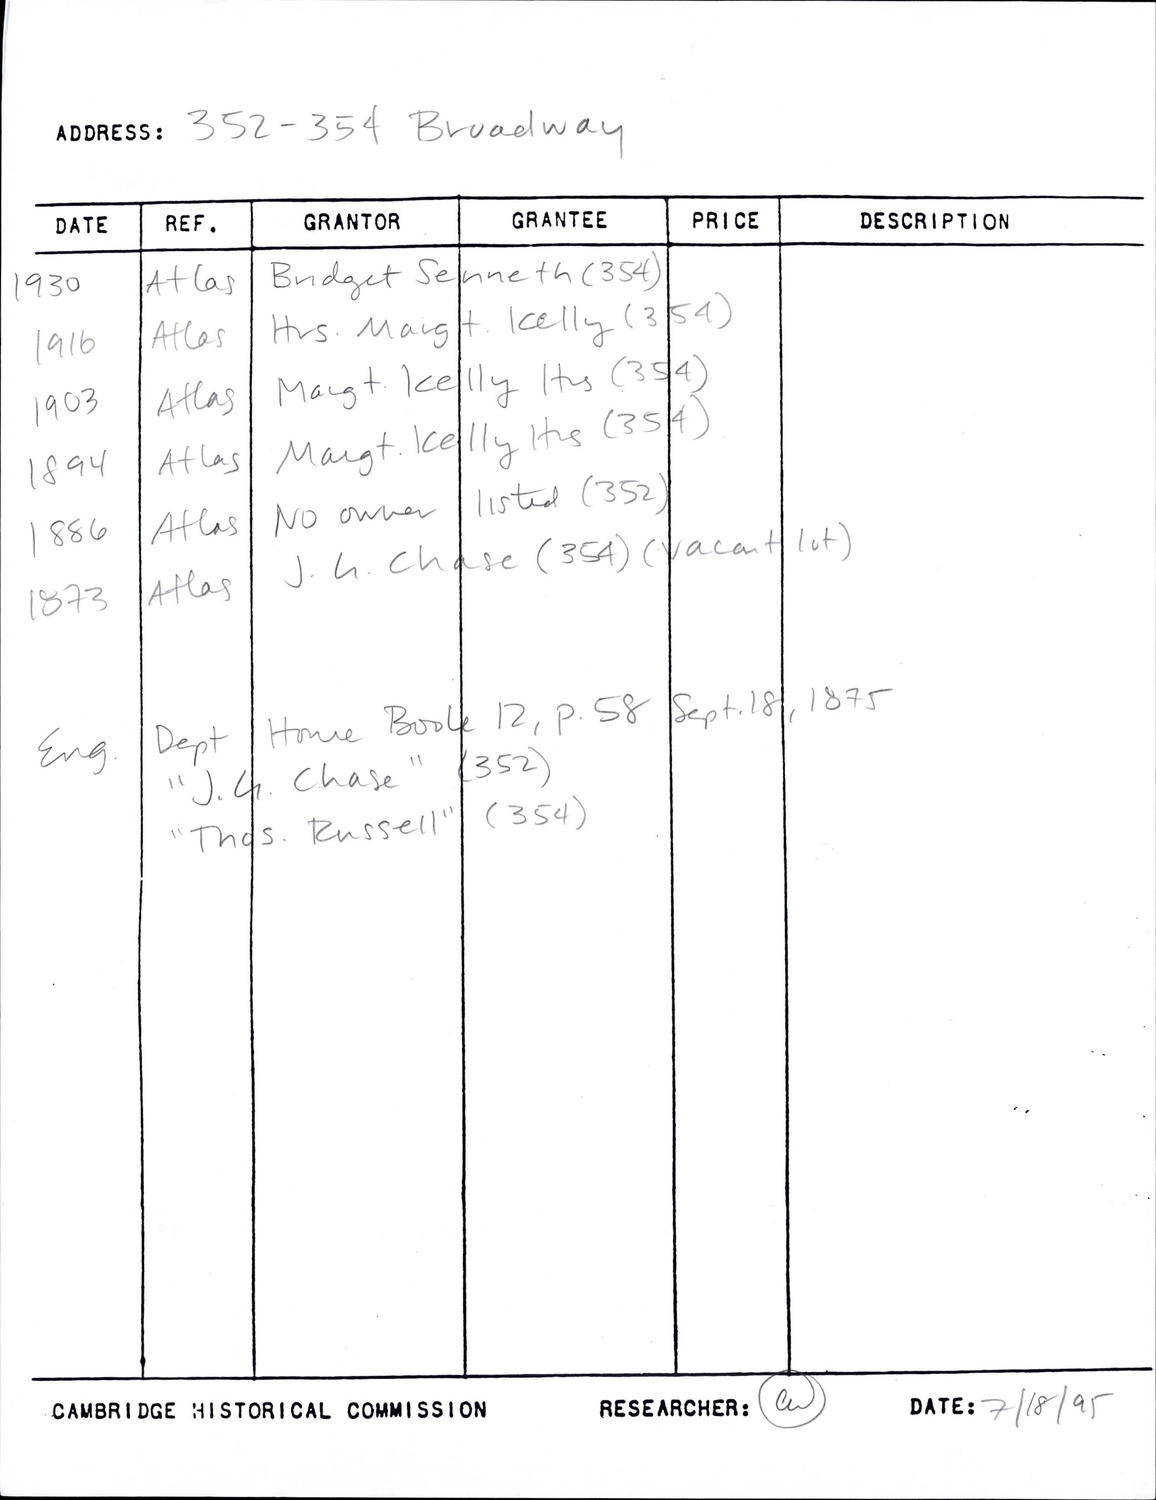 ADDRESS: 352-354 Broadway
DATE REF. GRANTOR GRANTEE PRICE DESCRIPTION
1930 Atlas Bridget Senneth (354)
1916 Atlas Hrs. Margt. Kelly (354)
1903 Atlas Margt. Kelly Hrs (354)
1894 Atlas Margt. Kelly Hrs (354)
1886 Atlas No owner listed (352)
1873 Atlas J. G. Chase (354) (vacant lot)
Eng. Dept House Book 12, p. 58 Sept. 18, 1875
"J. G. Chase" (352)
"Thos. Russell" (354)
CAMBRIDGE HISTORICAL COMMISSION RESEARCHER: DATE: 7/18/95